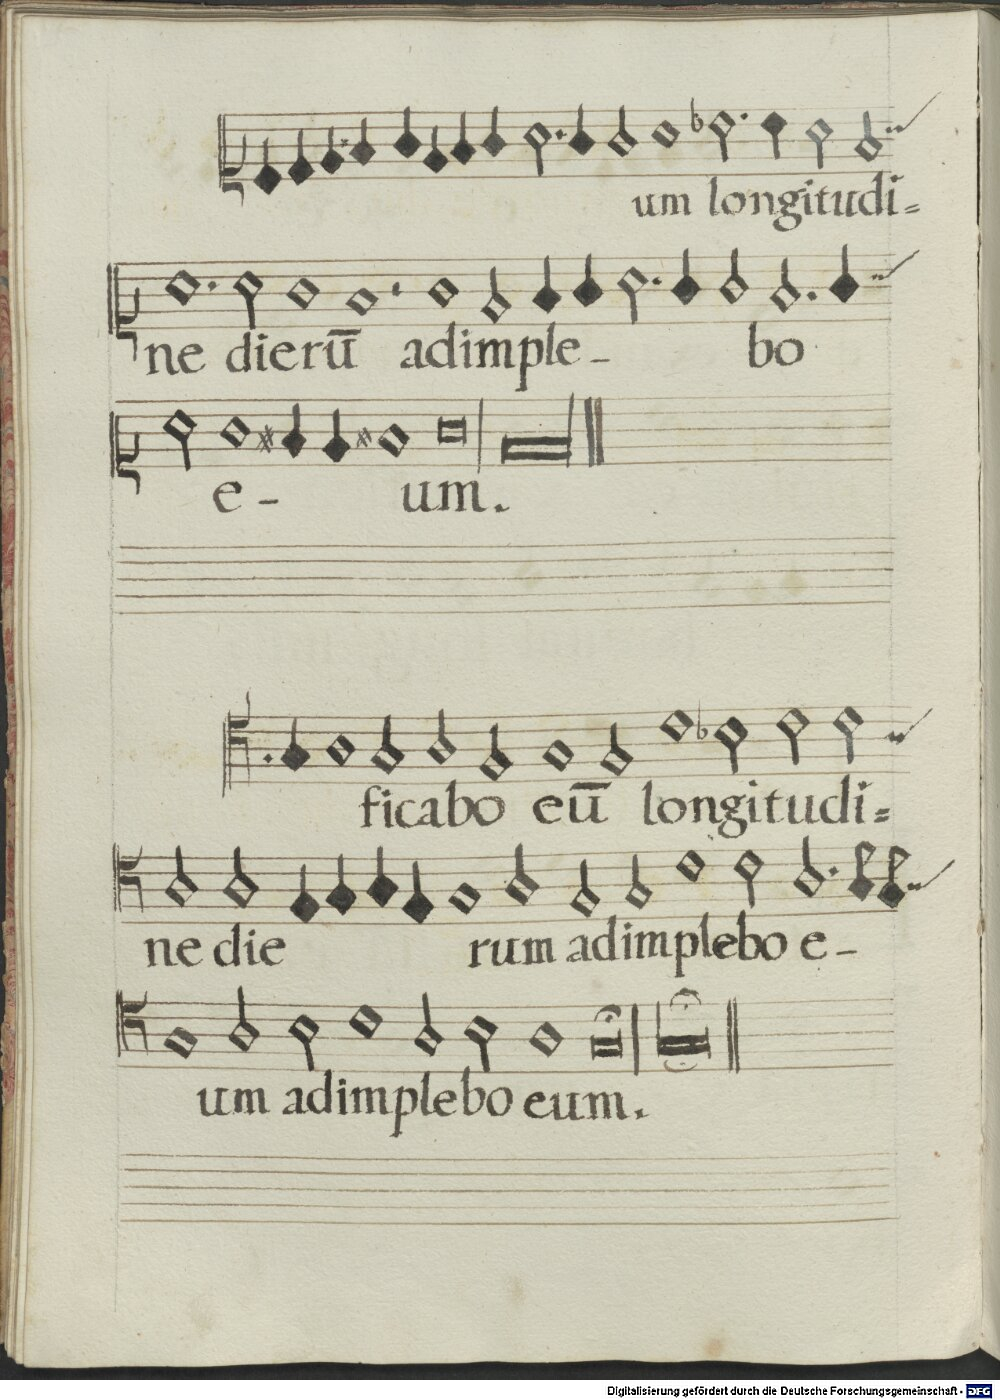 um longitudi=
ne dierū adimple- bo
e- um.
ficabo eū longitudi=
ne die rum adimplebo e-
um adimplebo eum.
Digitalisierung gefördert durch die Deutsche Forschungsgemeinschaft - DFG